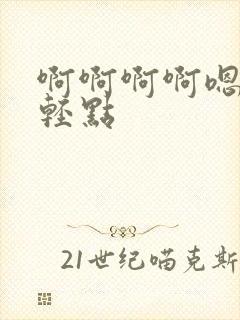 啊啊啊啊嗯
輕點
21世纪喵克斯